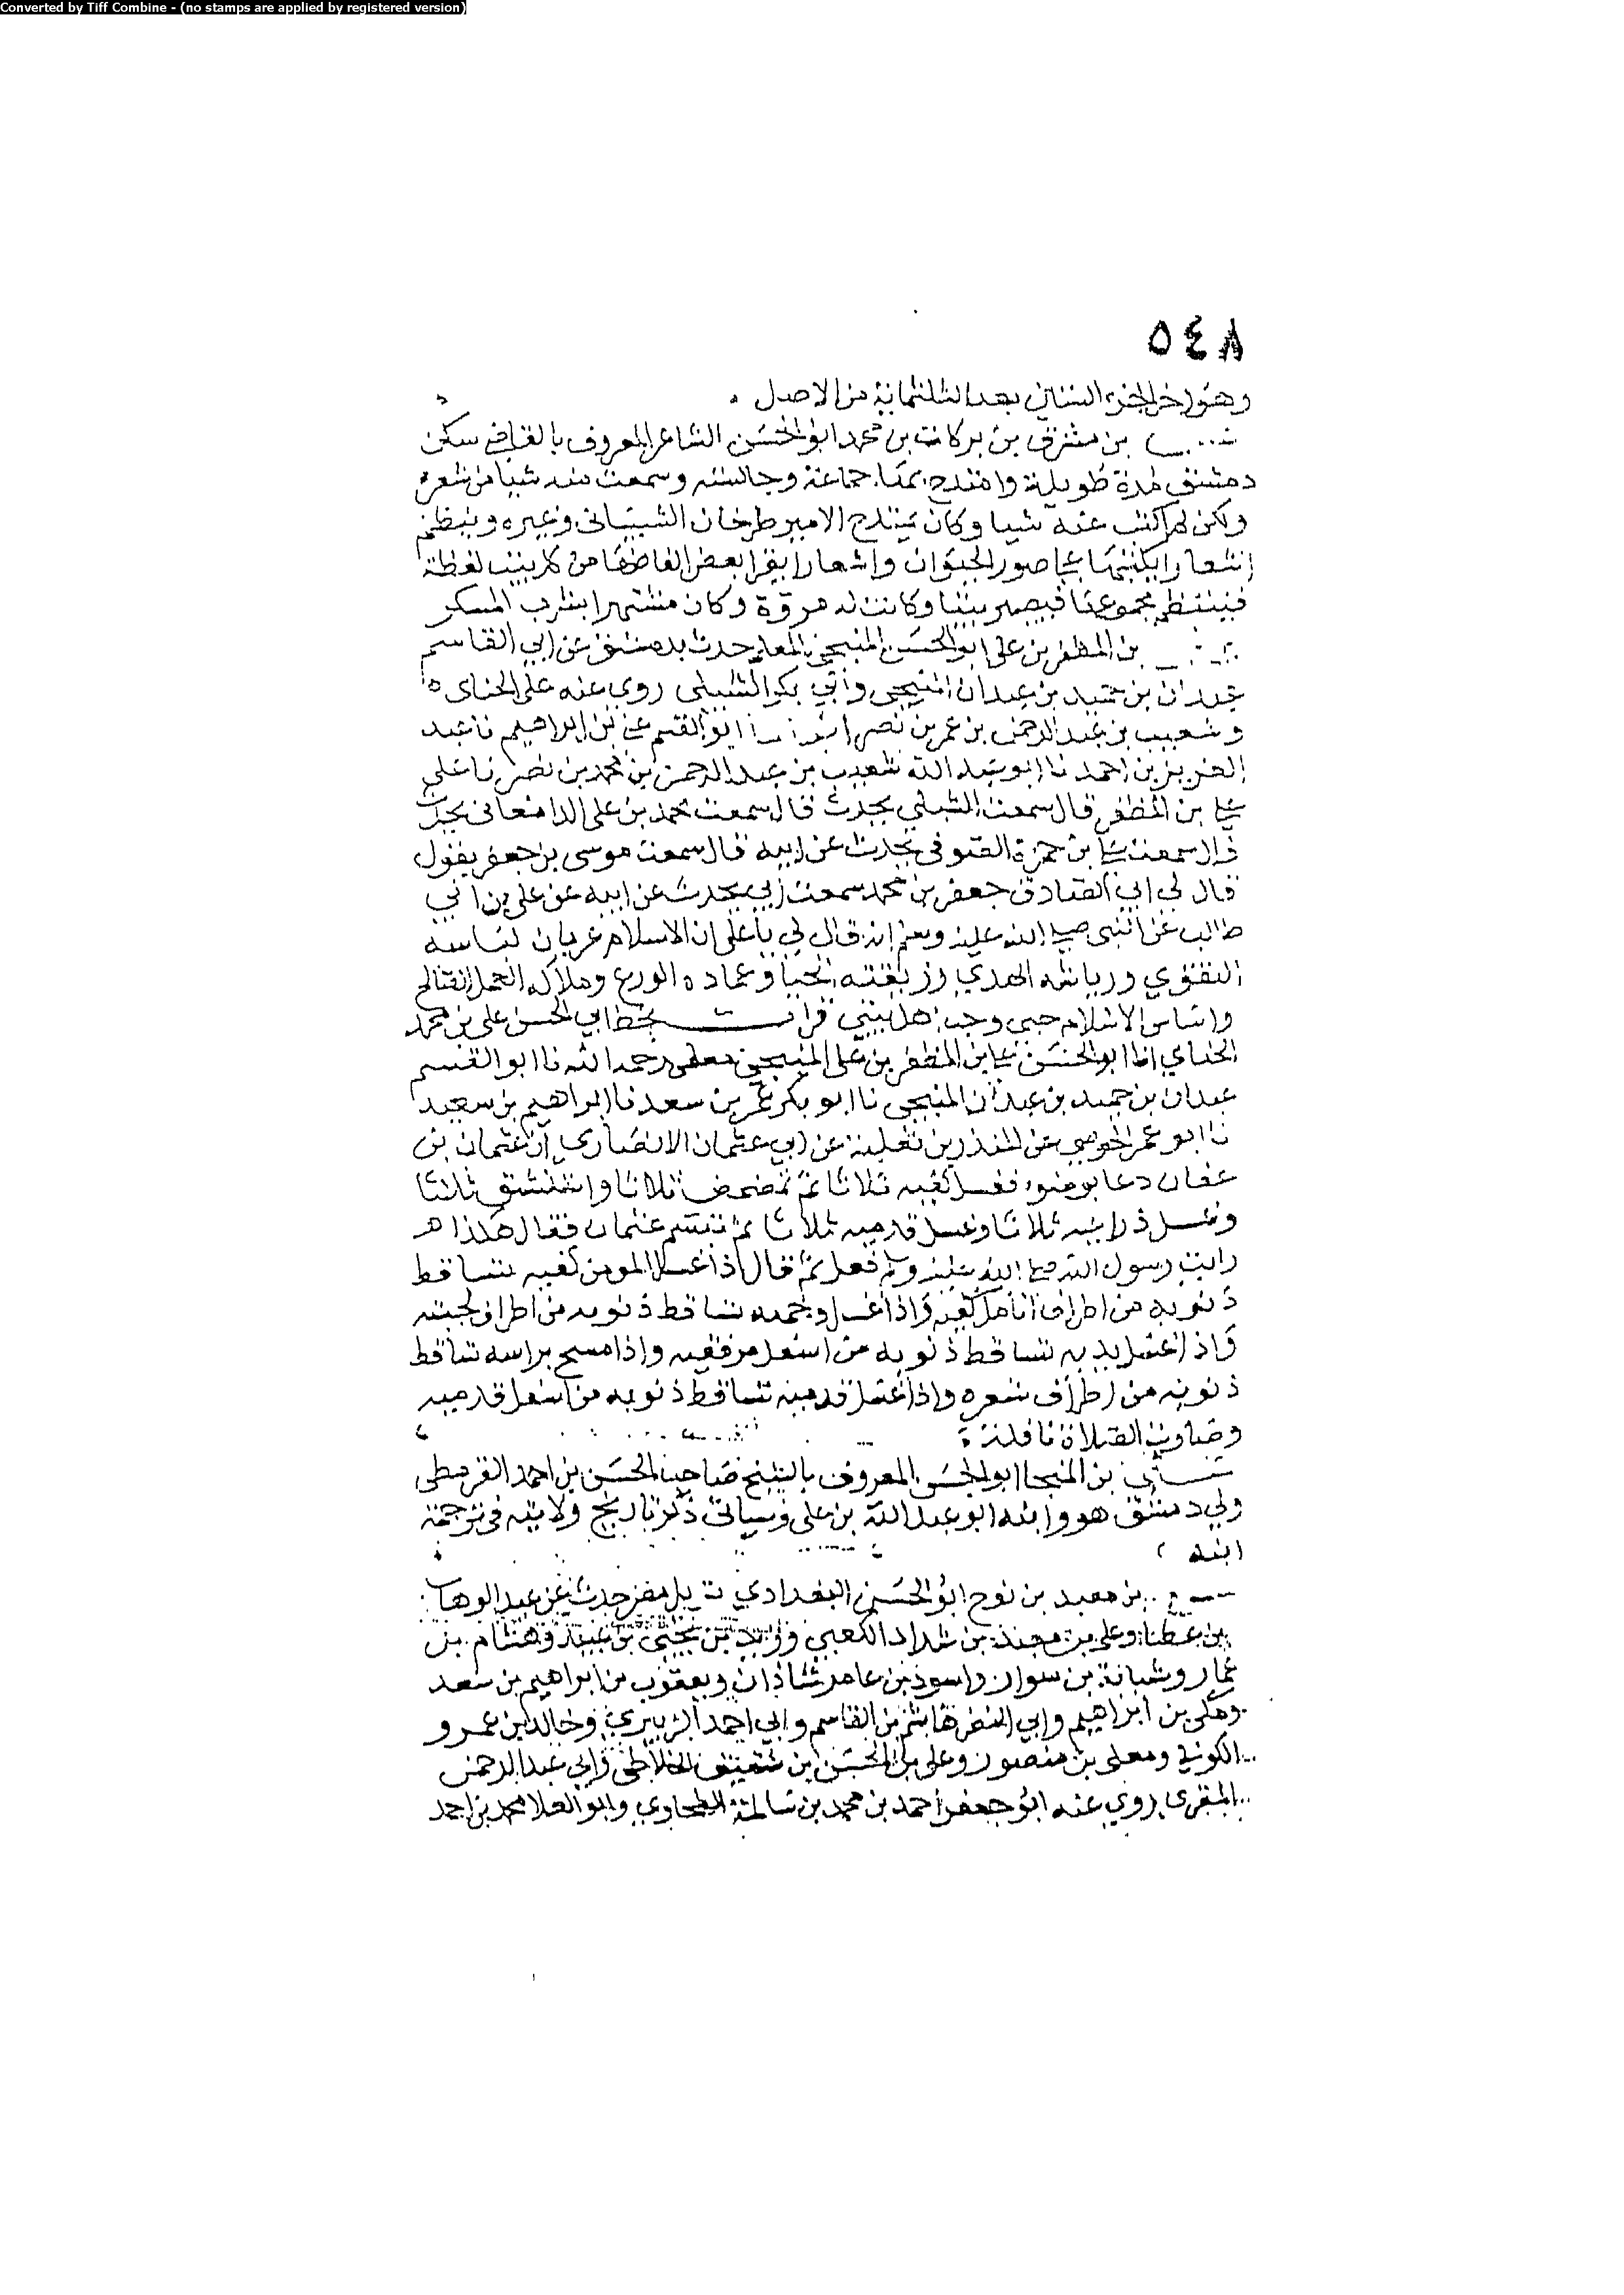 Converted by Tiff Combine - (no stamps are applied by registered version)
٥٤٨
وهو اخر الجزء الثاني بعد الثلثمائة من الاصل
بن مشرف بن بركات بن محمد ابو الحسن الشاعر المعروف بالقاضي سكن
دمشق مدة طويلة وامتدح بها جماعة وجالسته وسمعت منه شيا من شعره
ولكن لم اكتب عنه شيا وكان يمتدح الامير طرخان الشيباني وغيره وينظم
اشعارا يكتبها على صور الحيوان واشعارا يقرا بعض الفاظها من كل بيت لفظة
فينتظم مجموعها فيصير بيتا وكانت له مروة وكان مشتهرا بشرب المسكر
بن المظفر بن على ابو الحسن المنبجي المعلم حدث بدمشق عن ابي القاسم
عبدان بن حميد بن عبدان المنبجي وابي بكر الشبلى روى عنه على الحناى
وشعيب بن عبد الرحمن بن عمر بن نصر ابو القسم على بن ابراهيم نا عبد
العزيز بن احمد نا ابو عبد الله شعيب بن عبد الرحمن بن محمد بن نصر نا على
على بن المظفر قال سمعت الشبلي يحدث قال سمعت محمد بن على الدامغانى يحدث
قال سمعت على بن حمزة الصوفى يحدث عن ابيه قال سمعت موسى بن جعفر يقول
قال لي ابي الصادق جعفر بن محمد سمعت ابي يحدث عن ابيه عن على بن ابي
طالب عن النبى صلى الله عليه وسلم انه قال لي يا على ان الاسلام عريان لباسه
التقوي ورياشه الهدي وزينته الحيا وعماده الورع وملاكه العمل الصالح
واساس الاسلام حبي وحب اهل بيتي قرات بخط ابي الحسن على بن محمد
الحناي انا ابو الحسن على بن المظفر بن على المنبجي معلمى رحمه الله نا ابو القسم
عبدان بن حميد بن عبدان المنبجى نا ابو بكر عمر بن سعد نا ابراهيم بن سعيد
نا ابو عمر الحوضي عن المنذر بن ثعلبة عن ابي عثمان الانصاري ان عثمان بن
عفان دعا بوضوء فغسل كفيه ثلاثا ثم تمضمض ثلاثا واستنشق ثلاثا
وغسل ذراعيه ثلاثا وغسل قدميه ثلاثا ثم تبسم عثمان فقال هكذا
رايت رسول الله صلى الله عليه وسلم فعل ثم قال اذا غسل المومن كفيه تساقط
ذنوبه من اطراف انامل كفيه واذا غسل وجهه تساقط ذنوبه من اطراف لحيته
واذا غسل يديه تساقط ذنوبه من اسفل مرفقيه واذا مسح براسه تساقط
ذنوبه من اطراف شعره واذا غسل قدميه تساقط ذنوبه من اسفل قدميه
وصارت الصلاة نافلة
بن المنجا ابو الحسن المعروف بالشيخ صاحب الحسن بن احمد القرمطى
ولي دمشق هو وابنه ابو عبد الله بن على وسياتى ذكر تاريخ ولايته فى ترجمة
ابنه
بن معبد بن نوح ابو الحسن البغدادي نزيل مصر حدث عن عبد الوهاب
بن عطا وعلى بن معبد بن شداد الكعبي وزيد بن يحيى بن عبيد وهشام بن
عمار وشبابة بن سوار واسود بن عامر شاذان ويعقوب بن ابراهيم بن سعد
ومكى بن ابراهيم وابي النضر هاشم بن القاسم وابي احمد الزبيري وخالد بن عمرو
الكوفي ومعلى بن منصور وعلى بن الحسن بن شقيق وابي عبد الرحمن
المقرى روي عنه ابو جعفر احمد بن محمد بن سلامة الطحاوي وابو العلا محمد بن احمد